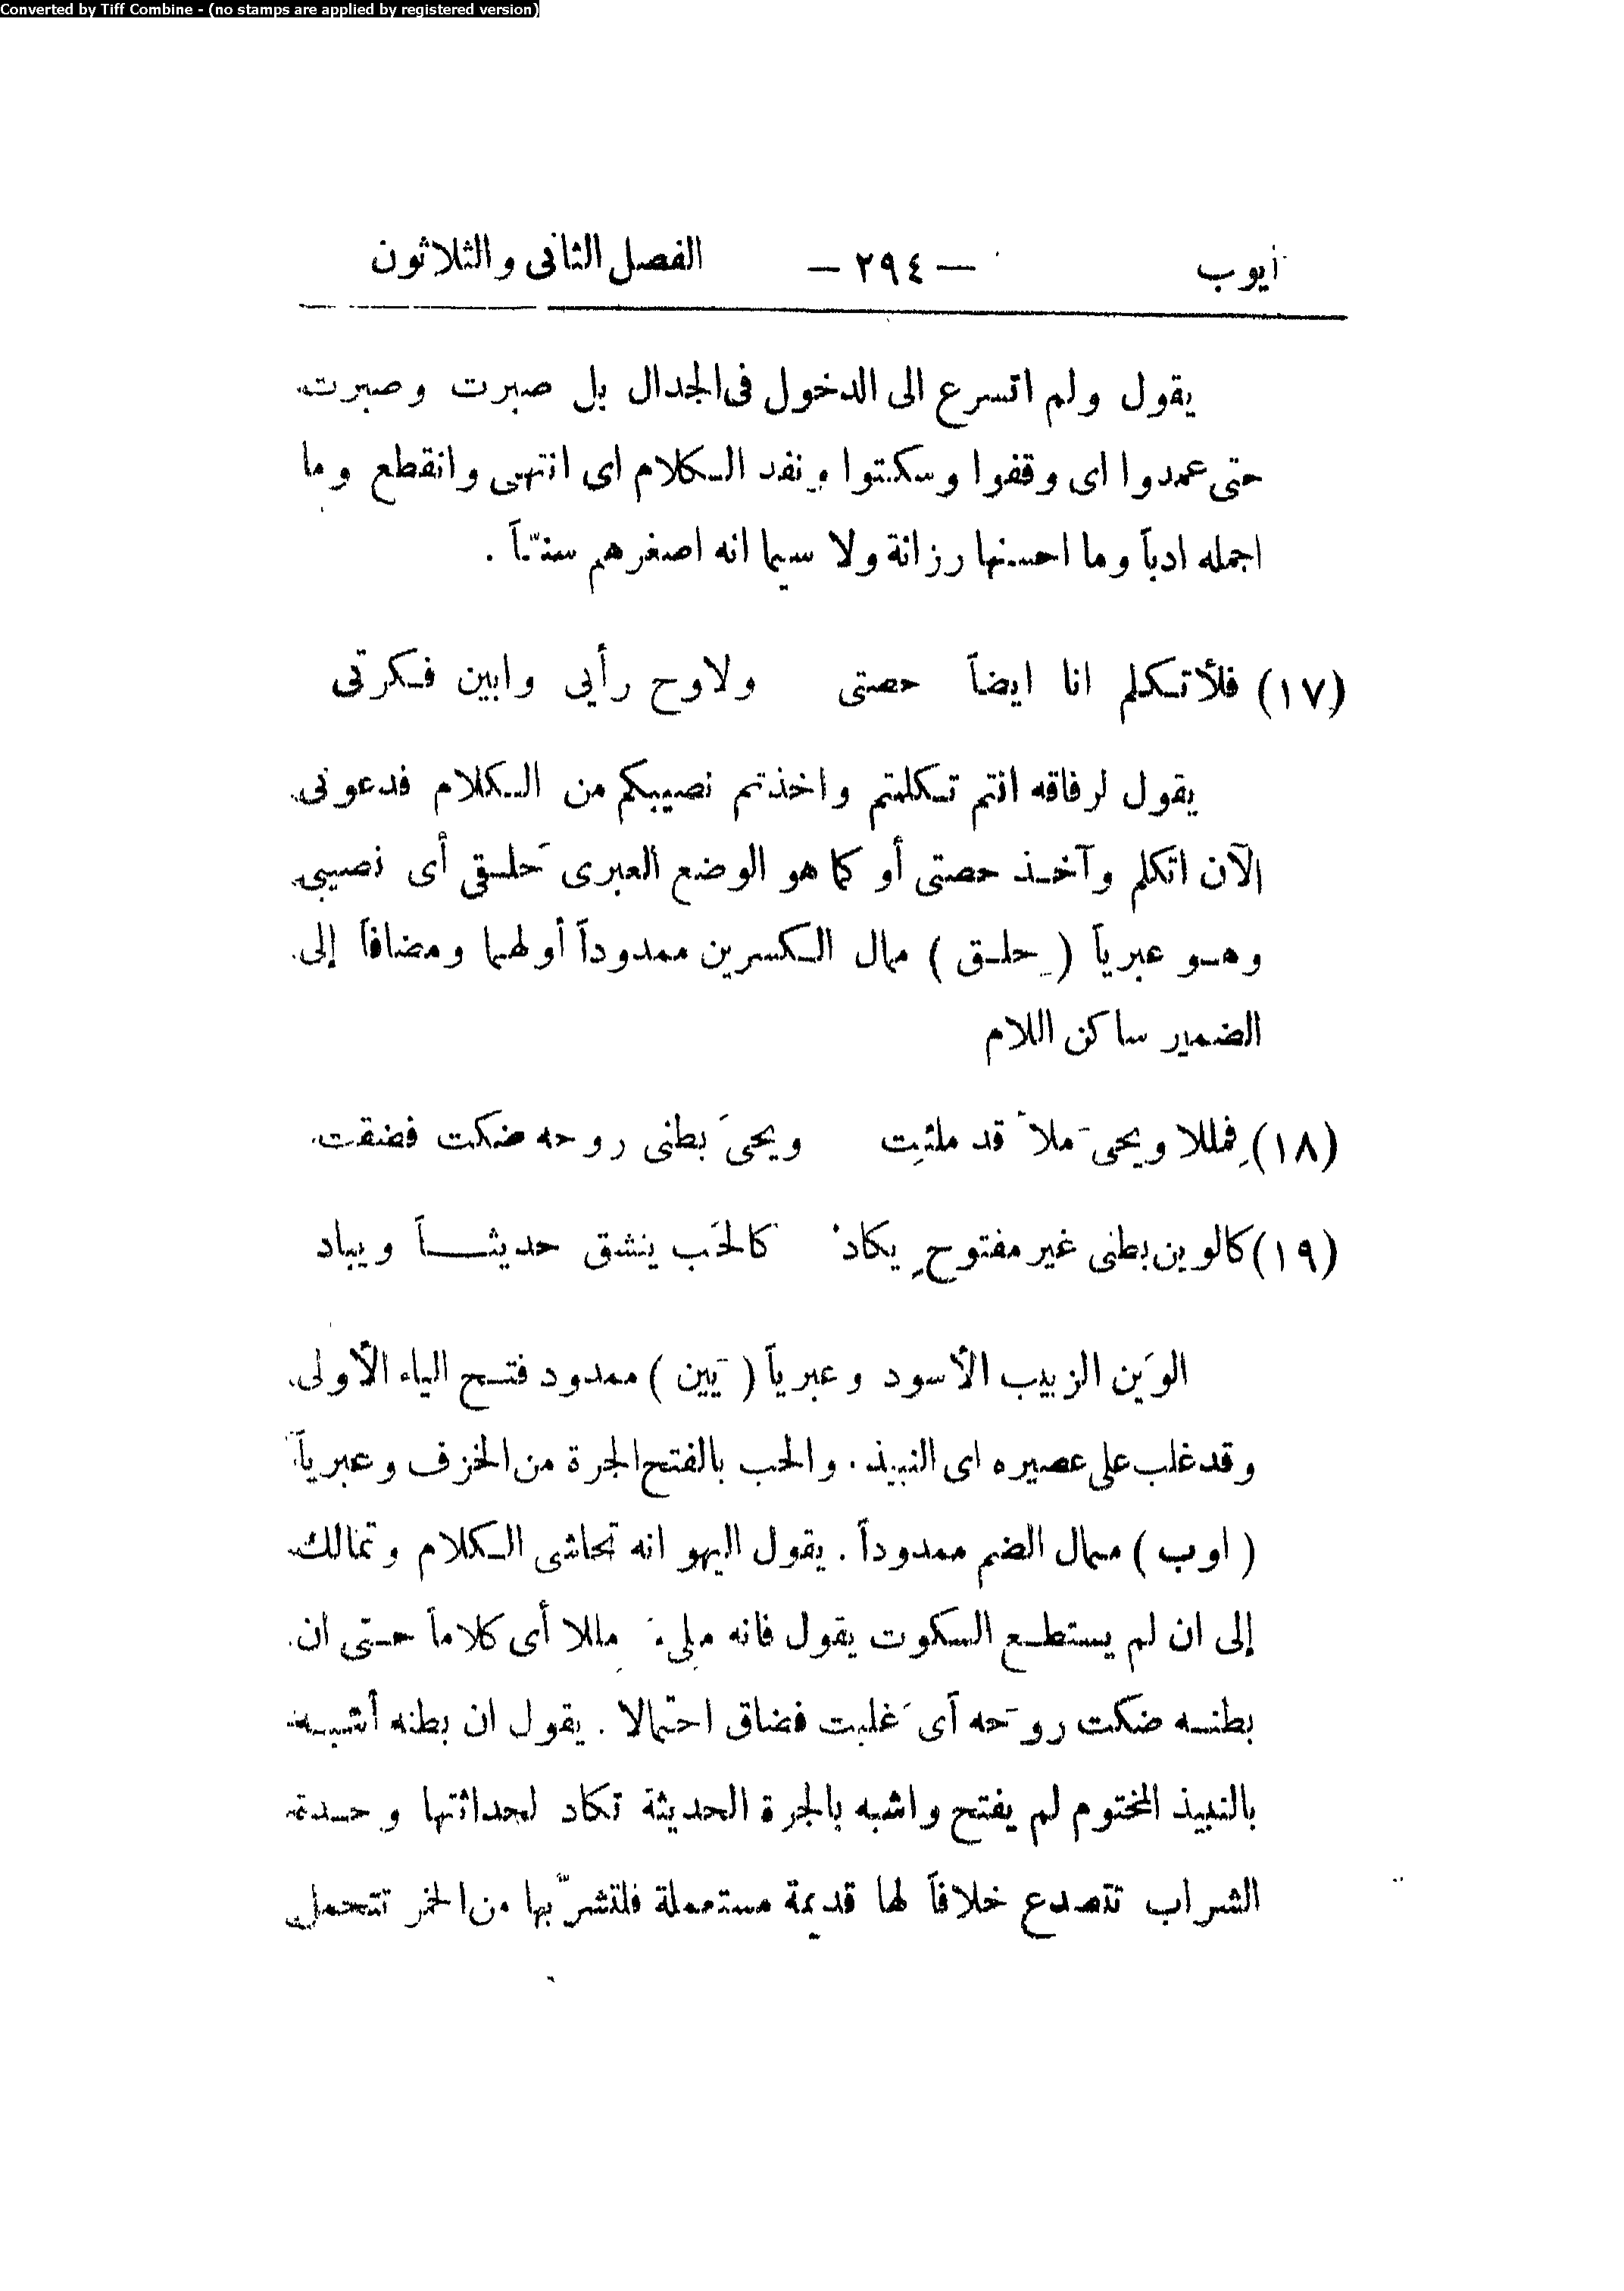 Converted by Tiff Combine - (no stamps are applied by registered version)
أيوب — ٢٩٤ — الفصل الثانى والثلاثون
يقول ولم اتسرع الى الدخول فى الجدال بل صبرت وصبرت
حتى عمدوا اى وقفوا وسكتوا ونفد الكلام اى انتهى وانقطع وما
اجمله ادباً وما احسنها رزانة ولا سيما انه اصغرهم سنّاً .
(١٧) فلأتكلم انا ايضاً حصتى ولاوح رأيى وابين فكرتى
يقول لرفاقه انتم تكلمتم واخذتم نصيبكم من الكلام فدعونى
الآن اتكلم وآخذ حصتى أو كما هو الوضع العبرى حَلقى أى نصيبى
وهو عبرياً ( حِلق ) ممال الكسرين ممدوداً أولهما ومضافاً إلى
الضمير ساكن اللام
(١٨) فمِللا ويحى مَلأ قد ملئِت ويحىَ بطنى روحه ضنكت فضقت
(١٩) كالوين بطنى غير مفتوحٍ يكادُ كالحَب ينشق حديثاً ويباد
الوَين الزبيب الأسود وعبرياً ( يَين ) ممدود فتح الياء الأولى
وقد غلب على عصيره اى النبيذ . والحب بالفتح الجرة من الخزف وعبرياً
( اوب ) ممال الضم ممدوداً . يقول اليهو انه تحاشى الكلام وتمالك
إلى ان لم يستطع السكوت يقول فانه ملىءَ مِللا أى كلاماً حتى ان
بطنه ضنكت روحَه أى غَلبت فضاق احتمالا . يقول ان بطنه أشبه
بالنبيذ المختوم لم يفتح واشبه بالجرة الحديثة تكاد لحداثتها وحدة
الشراب تتصدع خلافاً لها قديمة مستعملة فلتشرّبها من الخمر تتحمل